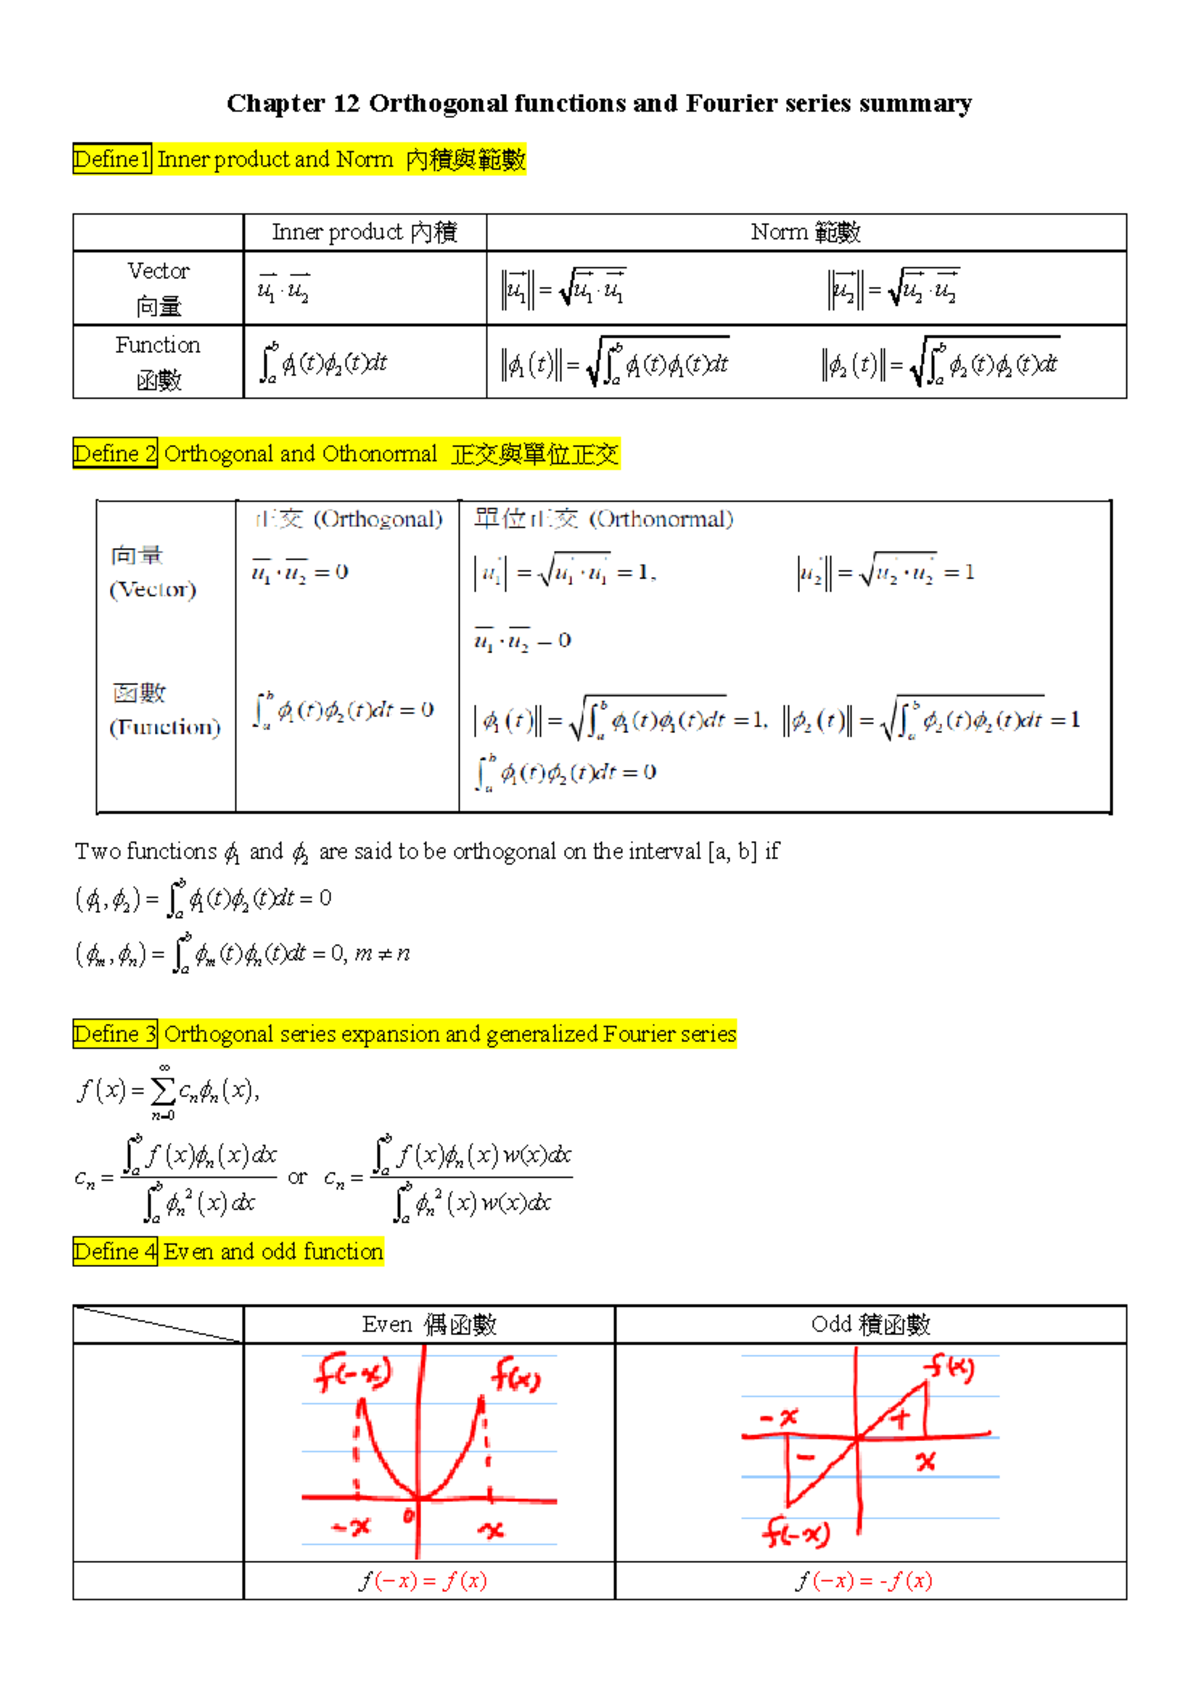 Chapter 12 Orthogonal functions and Fourier series summary
Define1 Inner product and Norm 內積與範數
Inner product 內積 Norm 範數
Vector 向量 u₁⃗ · u₂⃗ ‖u₁⃗‖ = √(u₁⃗ · u₁⃗) ‖u₂⃗‖ = √(u₂⃗ · u₂⃗)
Function 函數 ∫ₐᵇ ϕ₁(t)ϕ₂(t)dt ‖ϕ₁(t)‖ = √(∫ₐᵇ ϕ₁(t)ϕ₁(t)dt) ‖ϕ₂(t)‖ = √(∫ₐᵇ ϕ₂(t)ϕ₂(t)dt)
Define 2 Orthogonal and Othonormal 正交與單位正交
正交 (Orthogonal) 單位正交 (Orthonormal)
向量 (Vector) u₁ · u₂ = 0 |u₁| = √(u₁ · u₁) = 1, |u₂‖ = √(u₂ · u₂) = 1
u₁ · u₂ = 0
函數 (Function) ∫ₐᵇ ϕ₁(t)ϕ₂(t)dt = 0 |ϕ₁(t)‖ = √(∫ₐᵇ ϕ₁(t)ϕ₁(t)dt) = 1, ‖ϕ₂(t)‖ = √(∫ₐᵇ ϕ₂(t)ϕ₂(t)dt) = 1
∫ₐᵇ ϕ₁(t)ϕ₂(t)dt = 0
Two functions ϕ₁ and ϕ₂ are said to be orthogonal on the interval [a, b] if
(ϕ₁, ϕ₂) = ∫ₐᵇ ϕ₁(t)ϕ₂(t)dt = 0
(ϕₘ, ϕₙ) = ∫ₐᵇ ϕₘ(t)ϕₙ(t)dt = 0, m ≠ n
Define 3 Orthogonal series expansion and generalized Fourier series
f(x) = ∑ₙ₌₀^∞ cₙϕₙ(x),
cₙ = ∫ₐᵇ f(x)ϕₙ(x)dx / ∫ₐᵇ ϕₙ²(x)dx or cₙ = ∫ₐᵇ f(x)ϕₙ(x)w(x)dx / ∫ₐᵇ ϕₙ²(x)w(x)dx
Define 4 Even and odd function
Even 偶函數 Odd 積函數
f(-x) f(x)
-x 0 x
f(x)
-x +
- x
f(-x)
f(−x) = f(x) f(−x) = -f(x)